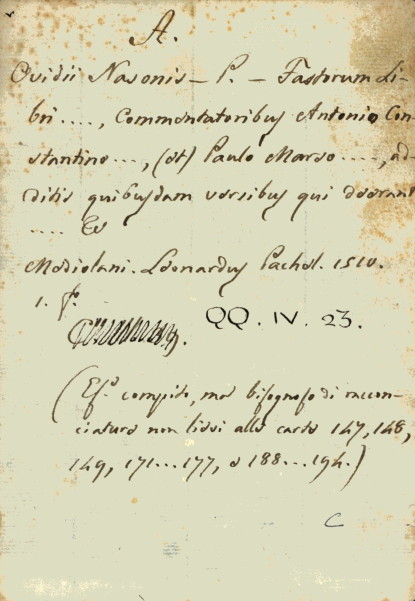 A.
Ovidii Nasonis – P. – Fastorum Li-
bri ...., Commentatoribus Antonio Con-
stantino ..., (et) Paulo Marso ...., ad-
ditis quibusdam versibus qui deerant
.... Ec
Modiolani. Leonardus Pachel. 1510.
1. f.º
QQ. IV. 23.
(Es.º compito, mà bisognoso di raccon-
ciature non lievi alle carte 147, 148,
149, 171...177, e 188...194.)
C